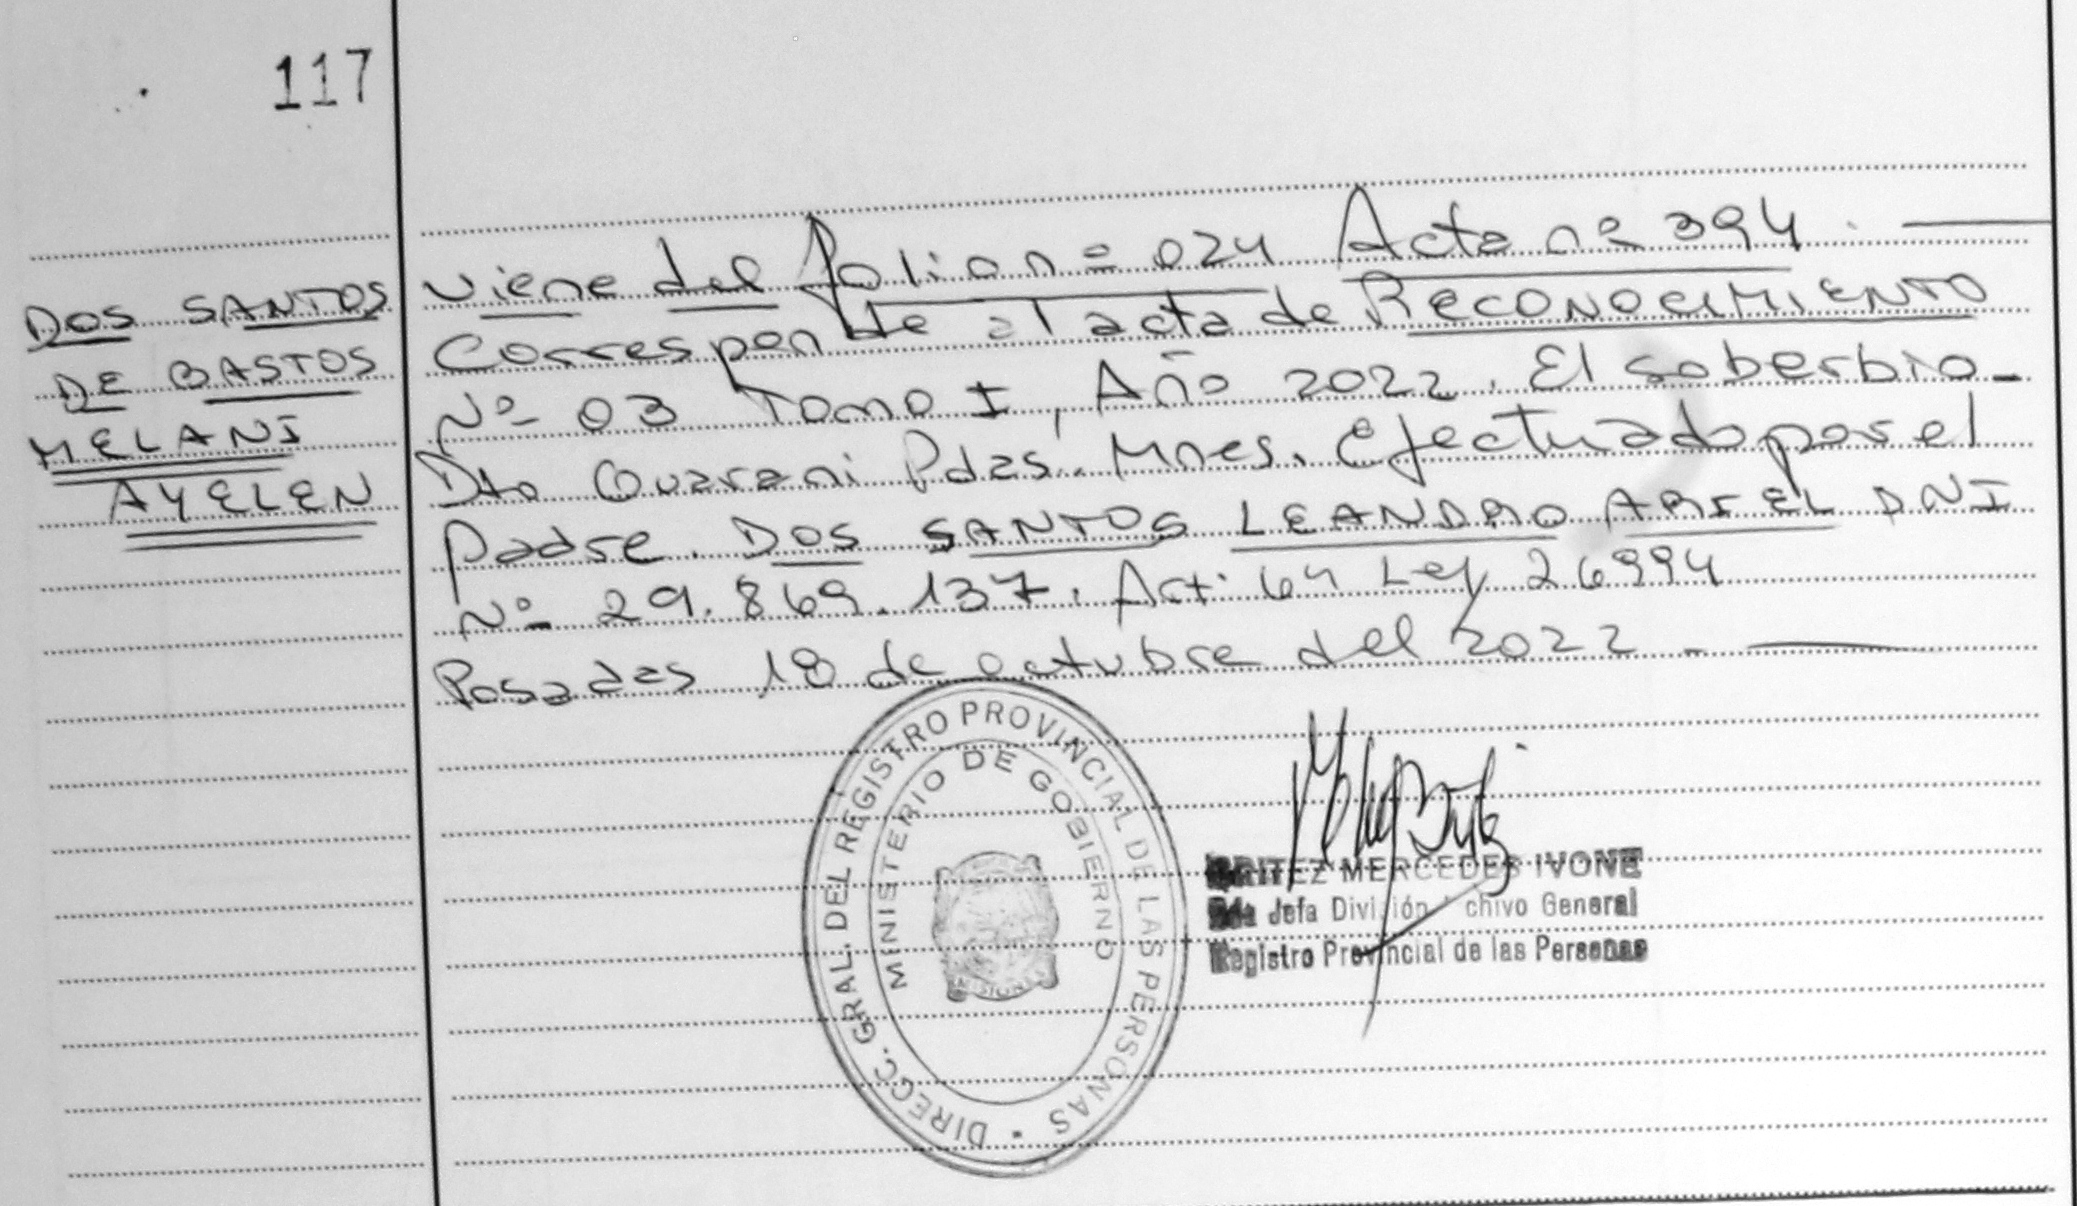 117
DOS SANTOS
DE BASTOS
MELANI
AYELEN
Viene del folio nº 024 Acta nº 394. —
Corresponde al acta de RECONOCIMIENTO
Nº 03 Tomo I, Año 2022. El soberbio -
Dto Guarani Pdas. Mnes. Efectuado por el
Padre. DOS SANTOS LEANDRO ARIEL DNI
Nº 29.869.137. Art. 64 Ley 26994
Posadas 18 de octubre del 2022 - —
DIRECC. GRAL. DEL REGISTRO PROVINCIAL DE LAS PERSONAS
MINISTERIO DE GOBIERNO
MISIONES
MERCEDES IVONE
Jefa División General
Registro Provincial de las Personas